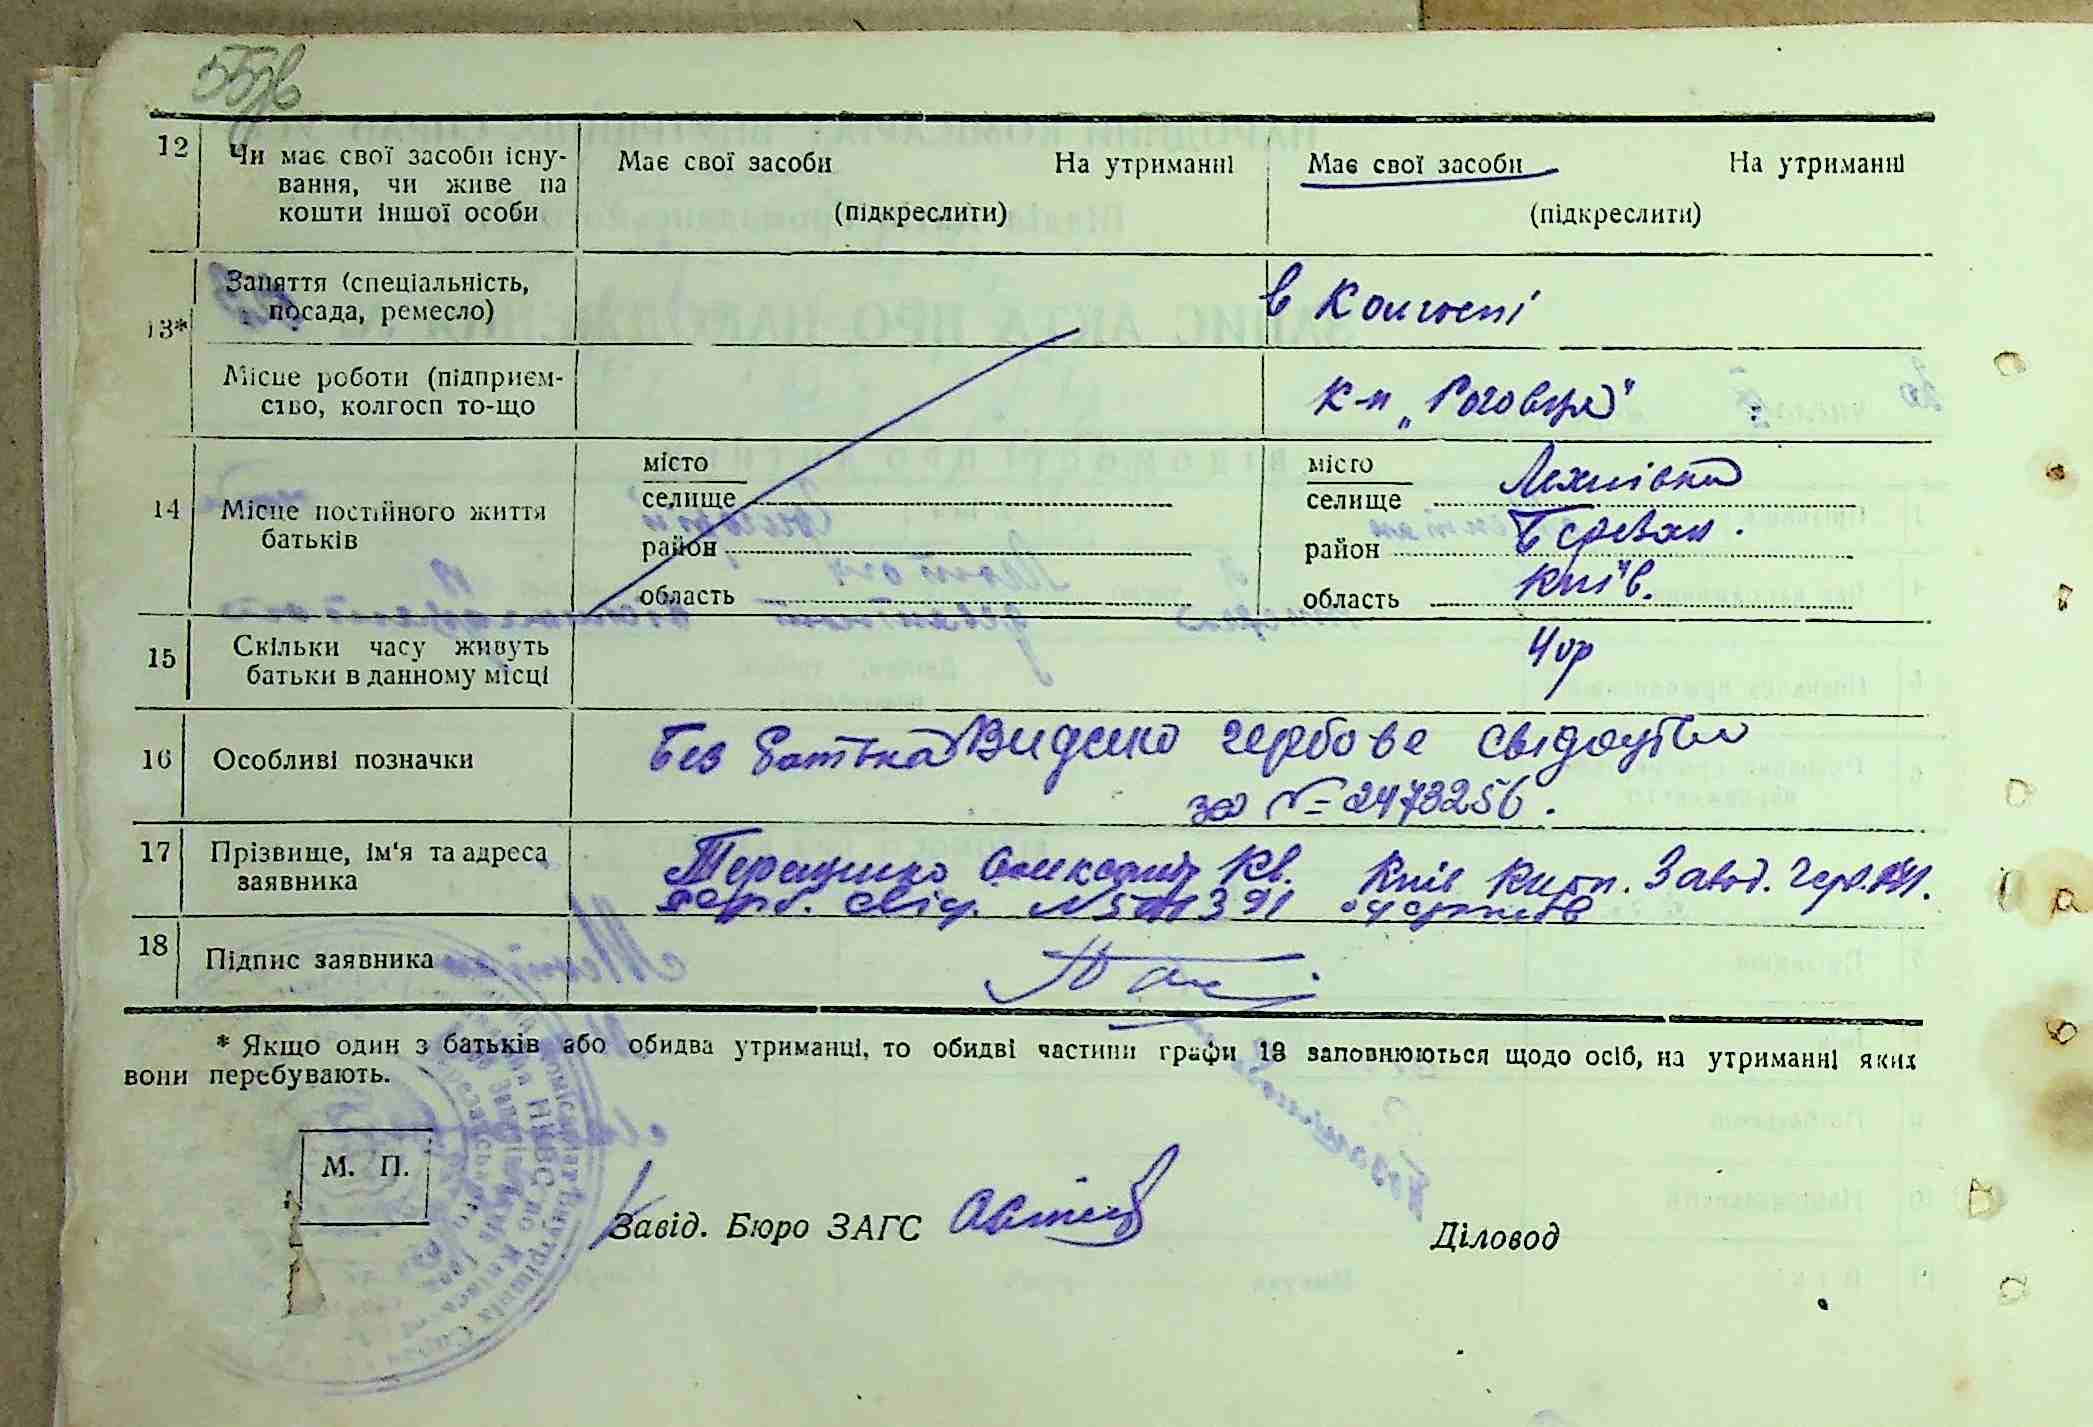 12 Чи має свої засоби існу-
вання, чи живе на
кошти іншої особи
Має свої засоби На утриманні
(підкреслити)
Має свої засоби На утриманні
(підкреслити)
13*
Заняття (спеціальність,
посада, ремесло)
в Колгоспі
Місце роботи (підприєм-
ство, колгосп то-що
к-п
14 Місце постійного життя
батьків
місто
селище
район
область
місто
селище Лехнівка
район Березан.
область Київ.
15 Скільки часу живуть
батьки в данному місці
16 Особливі позначки
Без батька Видано гербове свідоцтво
за №=2473256.
17 Прізвище, ім'я та адреса
заявника
Київ Завод.
свід.
18 Підпис заявника
* Якщо один з батьків або обидва утриманці, то обидві частини графи 13 заповнюються щодо осіб, на утриманні яких
вони перебувають.
М. П.
Завід. Бюро ЗАГС
Діловод